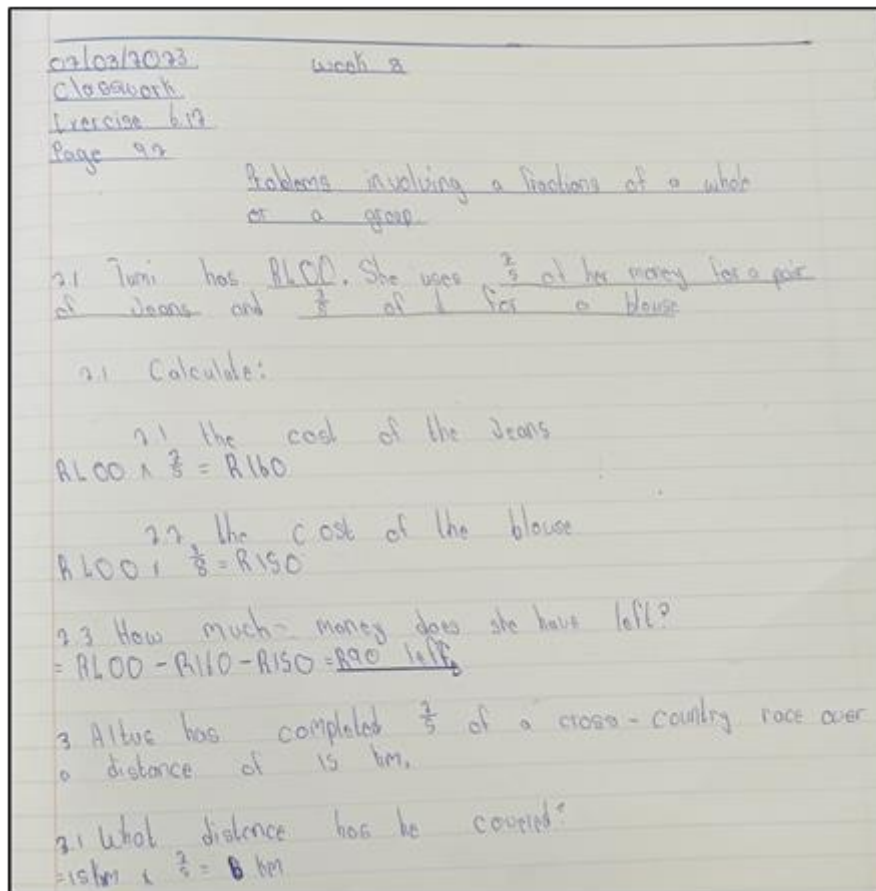 07/03/2023 Week 8
Classwork
Exercise 6.17
Page 92
Problems involving a fractions of a whole
or a group
2.1 Tumi has R400. She uses 2/5 of her money for a pair
of Jeans and 3/8 of it for a blouse
2.1 Calculate:
2.1 the cost of the Jeans
R400 x 2/5 = R160
2.2 the cost of the blouse
R400 x 3/8 = R150
2.3 How much - money does she have left?
= R400 - R160 - R150 = R90 left
3 Altus has completed 2/5 of a cross-country race over
a distance of 15 km.
3.1 What distance has he covered?
= 15 km x 2/5 = 6 km